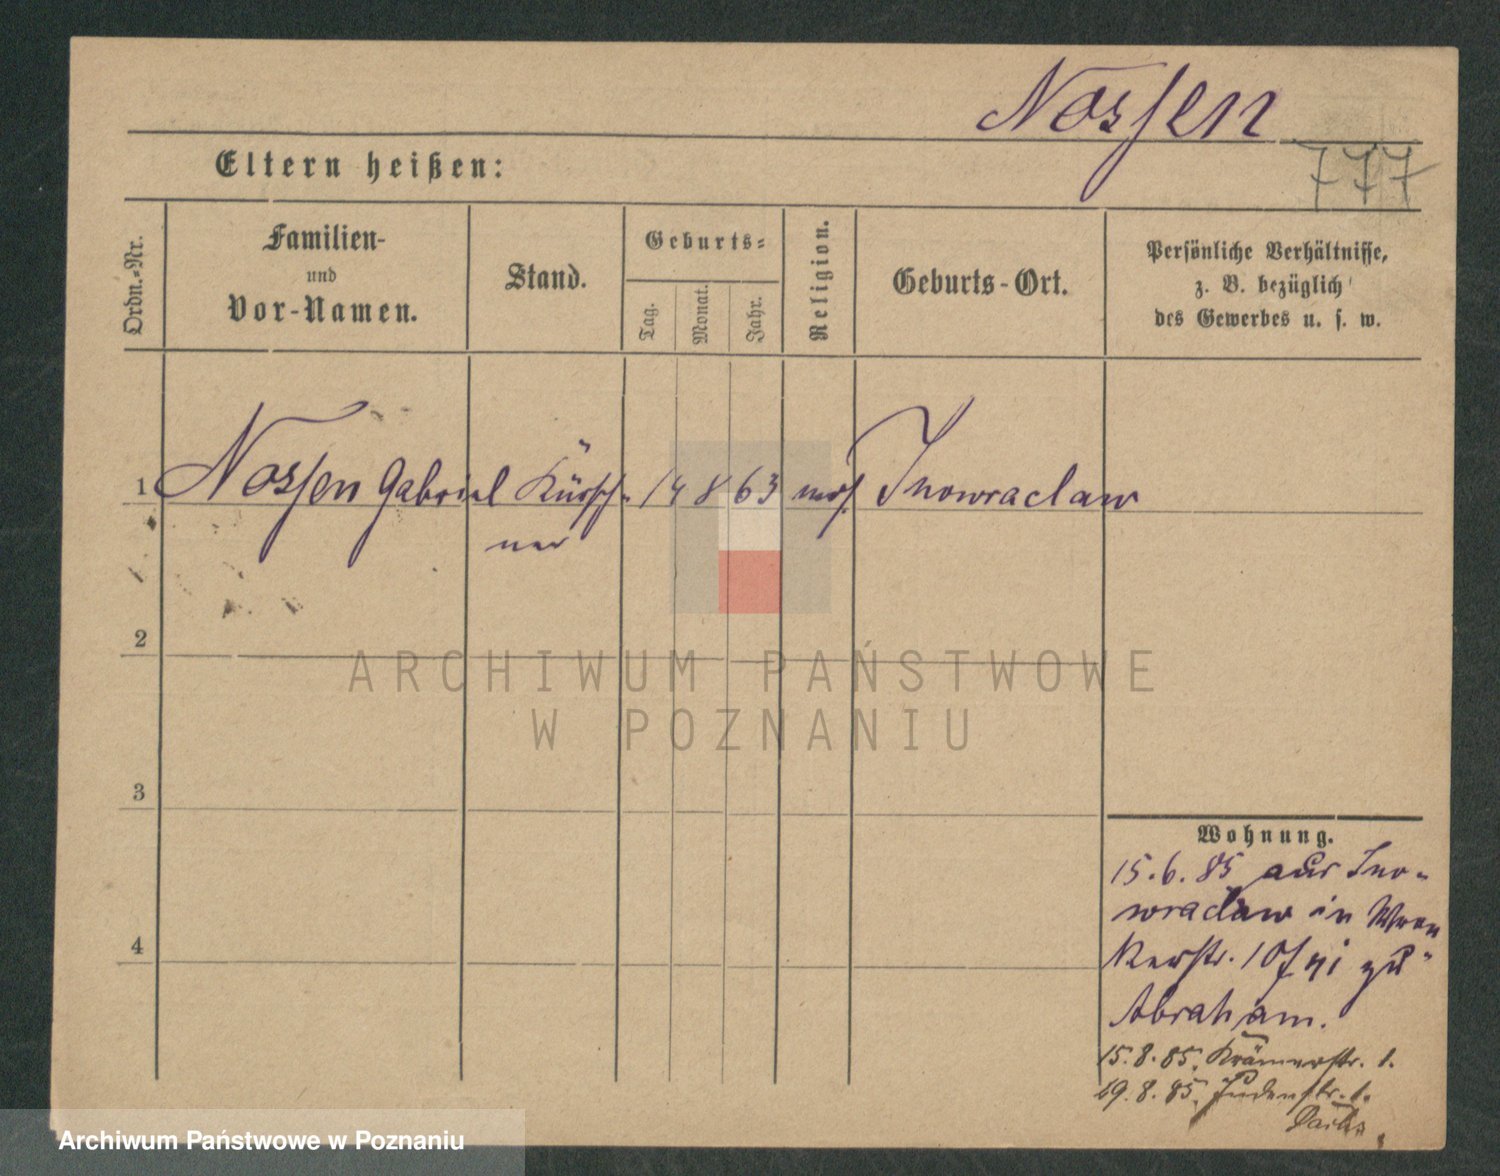 Nossen
777
Eltern heißen:
Ordn.-Nr.
Familien-
und
Vor-Namen.
Stand.
Geburts-
Tag.
Monat.
Jahr.
Religion.
Geburts-Ort.
Persönliche Verhältnisse,
z. B. bezüglich
des Gewerbes u. s. w.
1 Nossen Gabriel Kürsch- 14 8 63 mos. Inowraclaw
ner
2
ARCHIWUM PAŃSTWOWE
W POZNANIU
3
Wohnung.
15.6.85 aus Ino-
wraclaw in Wron
kerstr. 10 zu
Abraham.
4
15.8.85. Krämerstr. 1.
19.8.85. Judenstr. 1.
Archiwum Państwowe w Poznaniu